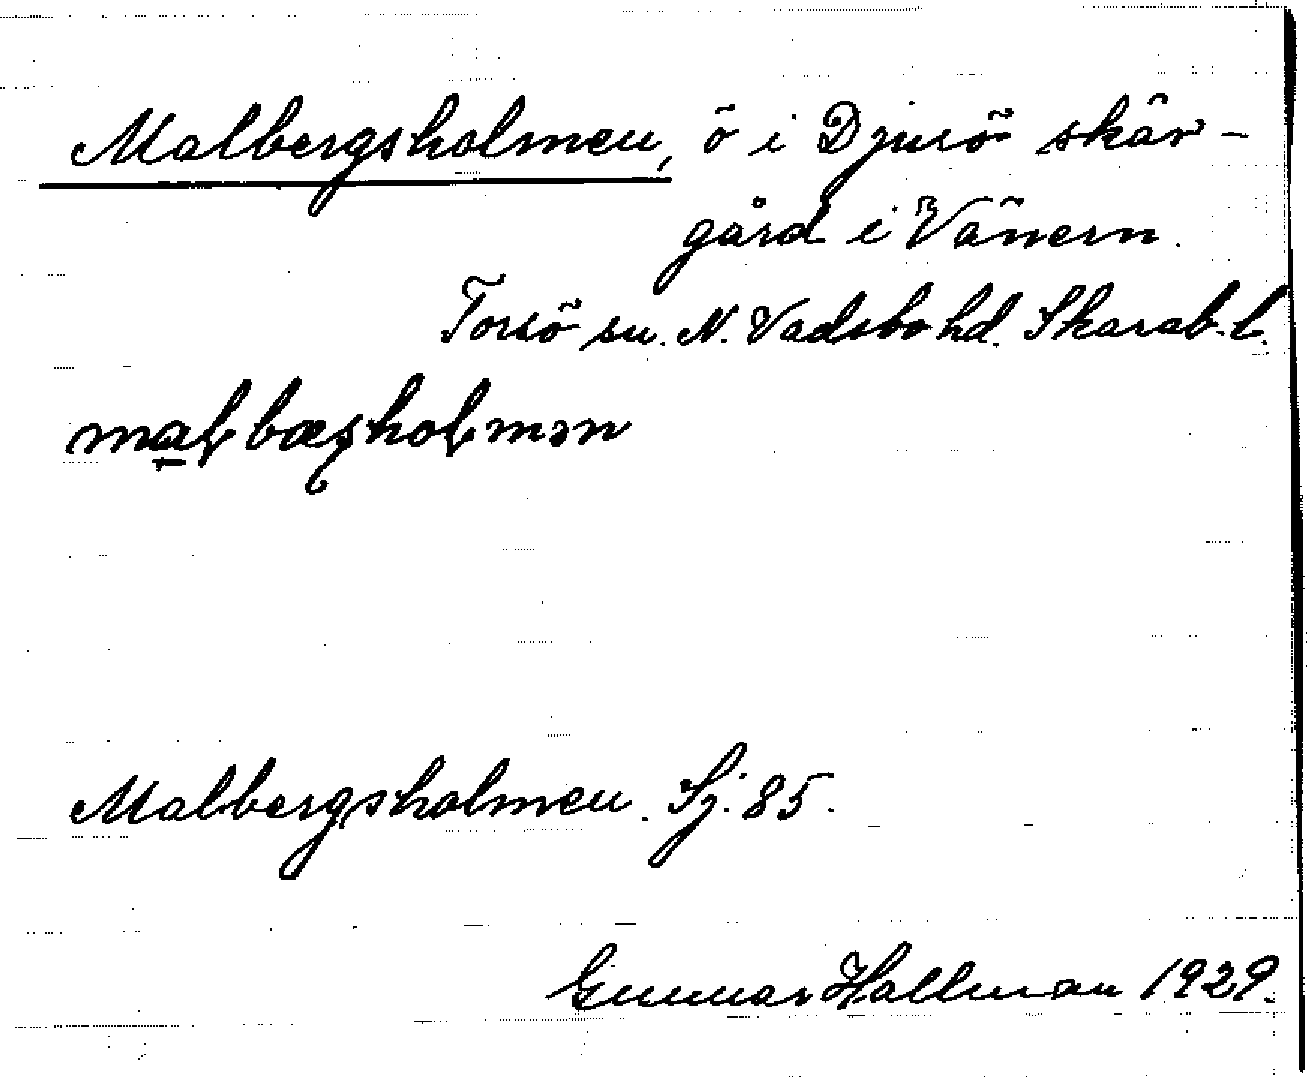 Malbergsholmen, ö i Djurö skär-
gård i Vänern.
Torsö sn. N. Vadsbo hd. Skarab. l.
malbæṣholmən
Malbergsholmen. Sj. 85.
Gunnar Hallman 1929.